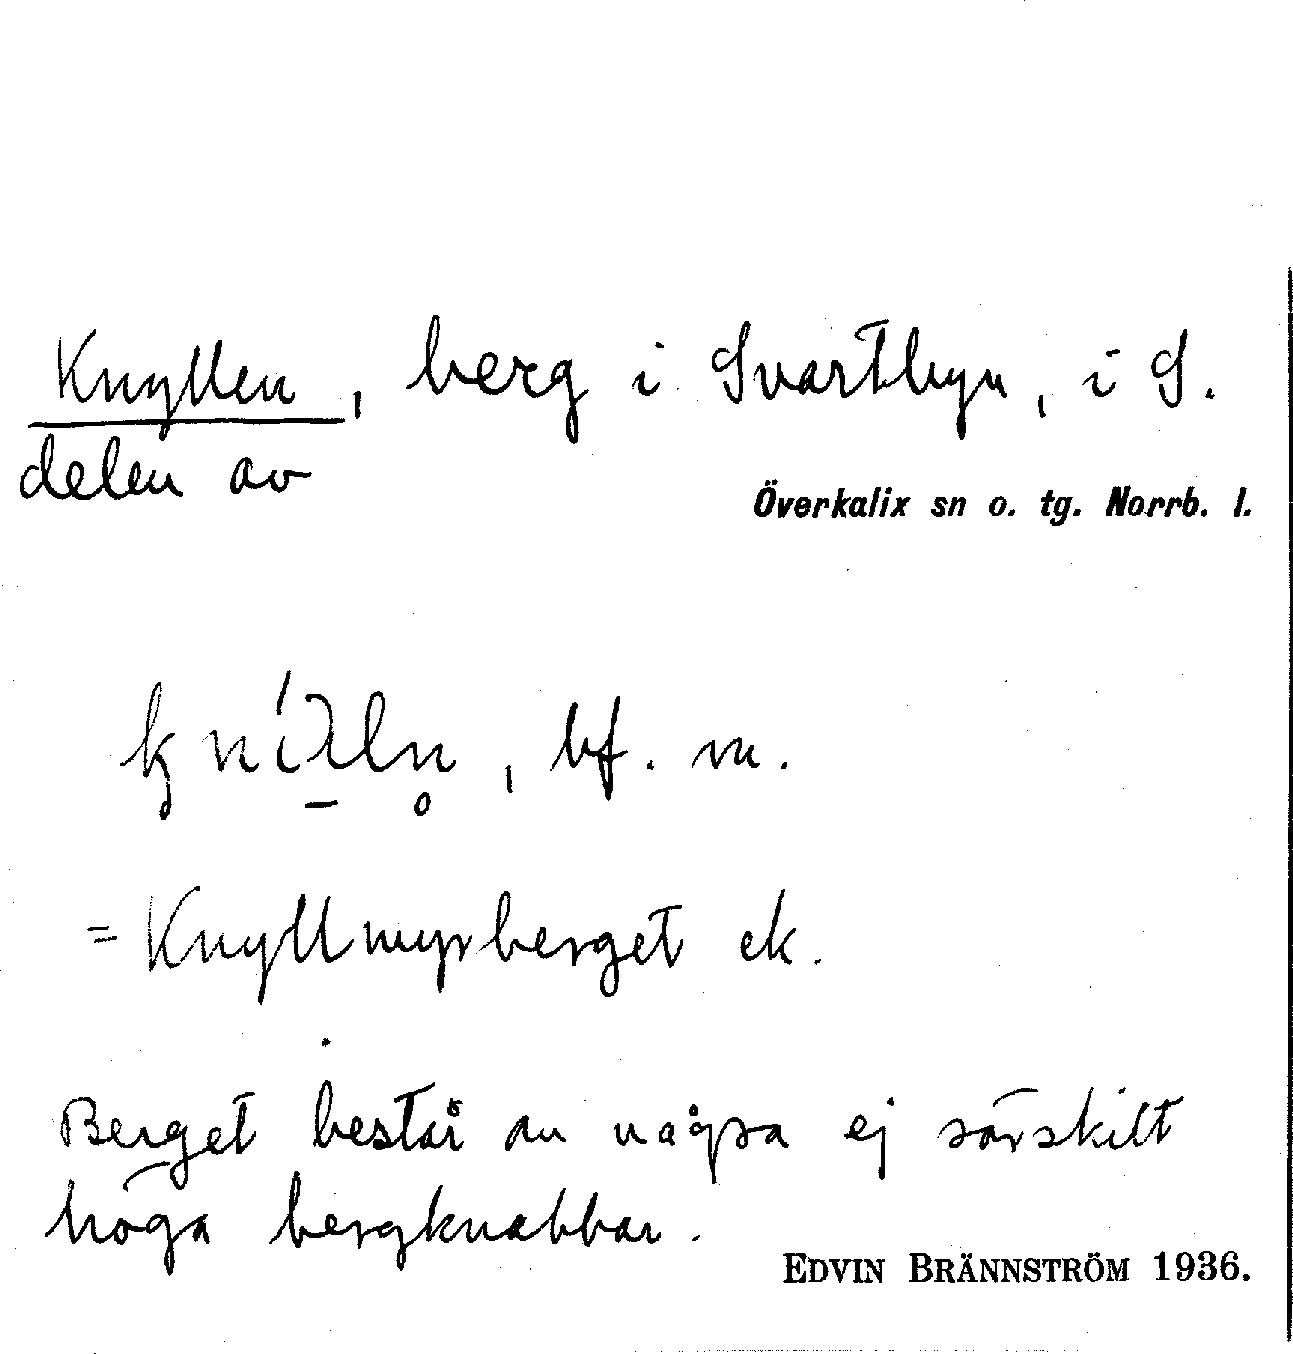 Knyllen, berg i Svartbyn, i S.
delen av
Överkalix sn o. tg. Norrb. l.
bf. m.
= Knyllmyrberget ek.
Berget består av några ej särskilt
höga bergknabbar.
EDVIN BRÄNNSTRÖM 1936.